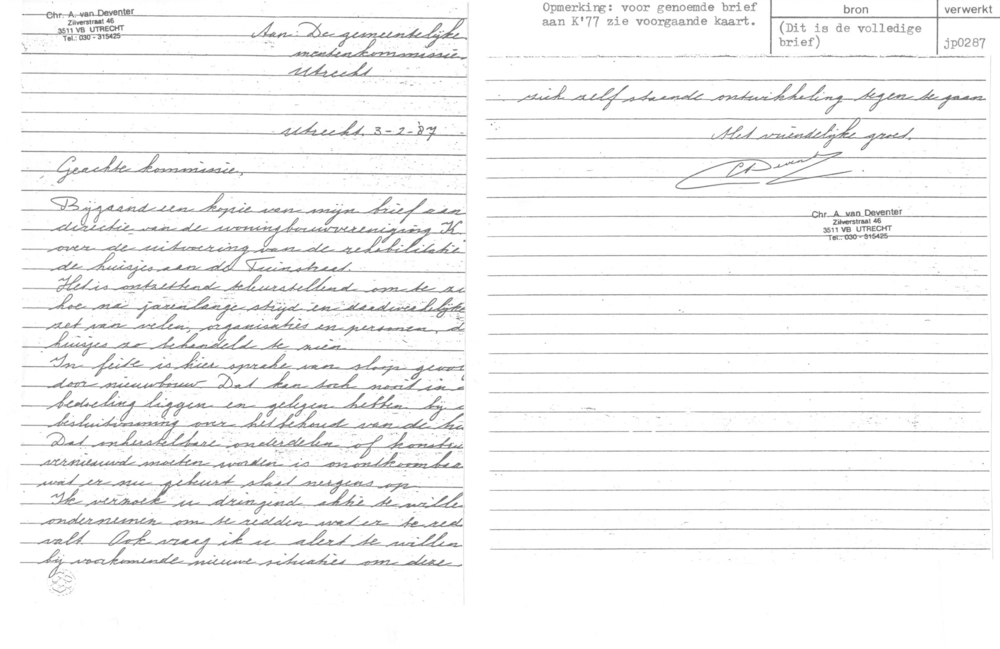 Chr. A. van Deventer
Zilverstraat 46
3511 VB UTRECHT
Tel.: 030 - 315425
Aan: De gemeentelijke
monumentenkommissie.
Utrecht
Utrecht, 3-2-87
Geachte kommissie,
Bijgaand een kopie van mijn brief aan
directie van de woningbouwvereniging K
over de uitvoering van de rehabilitatie
de huisjes aan de Tuinstraat.
Het is ontzettend teleurstellend om te zi
hoe na jarenlange strijd en daadwerkelijke
zet van velen, organisaties en personen, d
huisjes zo behandeld te zien
In feite is hier sprake van sloop gevol
door nieuwbouw. Dat kan toch nooit in d
bedoeling liggen en gelegen hebben bij d
besluitvorming over het behoud van de hu
Dat onherstelbare onderdelen of konstru
vernieuwd moeten worden is onontkoombaa
wat er nu gebeurt slaat nergens op
Ik verzoek u dringend aktie te wille
ondernemen om te redden wat er te red
valt. Ook vraag ik u alert te willen
bij voorkomende nieuwe situaties om deze
Opmerking: voor genoemde brief
aan K'77 zie voorgaande kaart.
bron
(Dit is de volledige
brief)
verwerkt
jp0287
zich zelf staande ontwikkeling tegen te gaan
Met vriendelijke groet.
Chr. A. van Deventer
Zilverstraat 46
3511 VB UTRECHT
Tel.: 030 - 315425